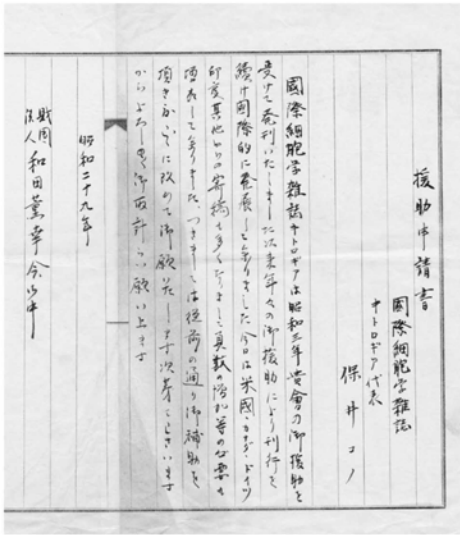 援助申請書
國際細胞学雑誌
チトロギア代表
保井コノ
國際細胞学雑誌チトロギアは昭和三年貴會の御援助を
受けて発刊いたしました以来年々の御援助により刊行を
続け國際的に発展して参りました今日は米國、カナダ、ドイツ
印度其他よりの寄稿も多くなりまして頁数の増加等の必要も
生じて参りました、つきましては従前の通り御補助を
頂きたくここに改めて御願いたします次第でございます
からよろしく御取計らい願い上ます
昭和二十九年
財団法人 和田薫幸会御中